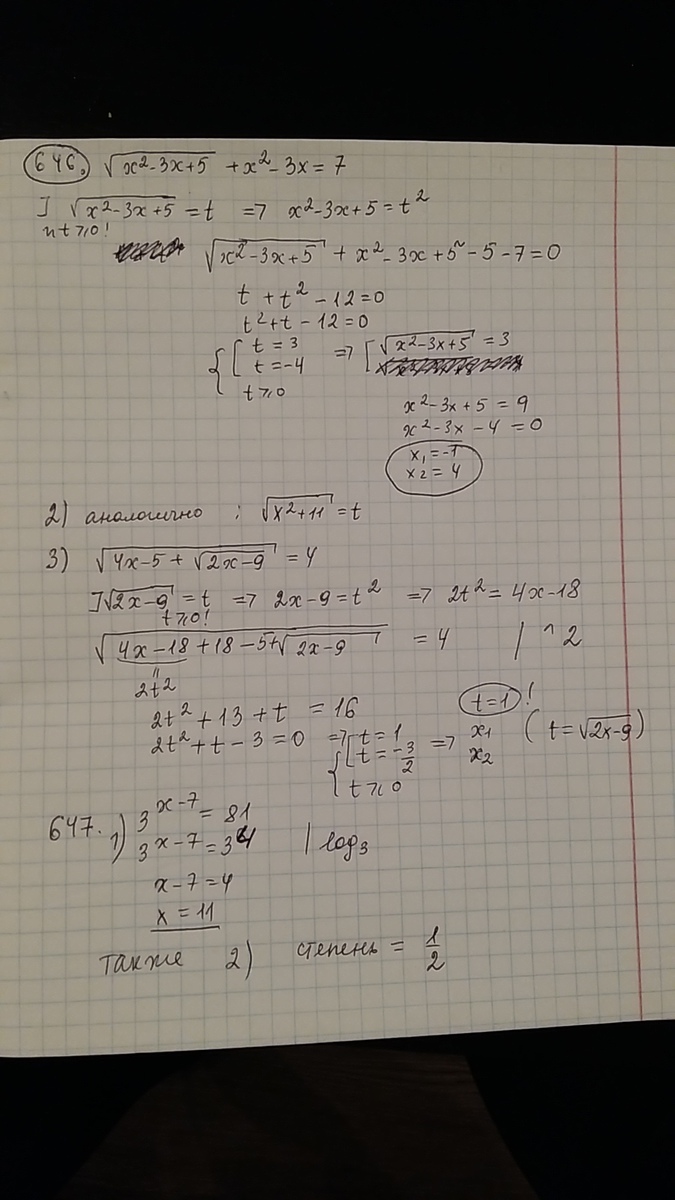 646. √(x²-3x+5) + x² - 3x = 7
] √(x²-3x+5) = t => x²-3x+5 = t²
и t ⩾ 0!
√(x²-3x+5) + x² - 3x + 5 - 5 - 7 = 0
t + t² - 12 = 0
t² + t - 12 = 0
{ [ t = 3 => [ √(x²-3x+5) = 3
t = -4
t ⩾ 0
x² - 3x + 5 = 9
x² - 3x - 4 = 0
x₁ = -1
x₂ = 4
2) аналогично : √(x²+11) = t
3) √(4x-5+√(2x-9)) = 4
] √(2x-9) = t => 2x-9 = t² => 2t² = 4x-18
t ⩾ 0!
√(4x-18+18-5+√(2x-9)) = 4 | ^2
"
2t²
2t² + 13 + t = 16
2t² + t - 3 = 0 => { [ t = 1 => t = 1 !
t = -3/2
t ⩾ 0
x₁ ( t = √(2x-9) )
x₂
647. 1) 3^(x-7) = 81
3^(x-7) = 3^4 | log₃
x-7 = 4
x = 11
также 2) степень = 1/2